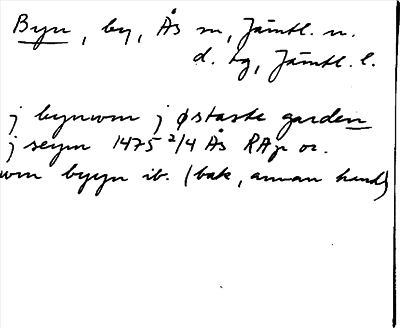 Byn, by, Ås sn, Jämtl. n.
d. tg, Jämtl. l.
j bynwm j østaste garden
j seym 1475 2/4 Ås RAp or.
wm byyn ib. (bak, annan hand)